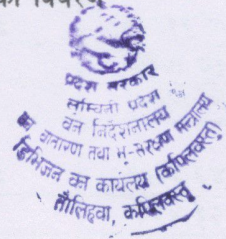 प्रदेश सरकार
लुम्बिनी प्रदेश
वन निर्देशनालय
वातावरण तथा भू-संरक्षण मन्त्रालय
डिभिजन वन कार्यालय (कपिलवस्तु)
तौलिहवा, कपिलवस्तु